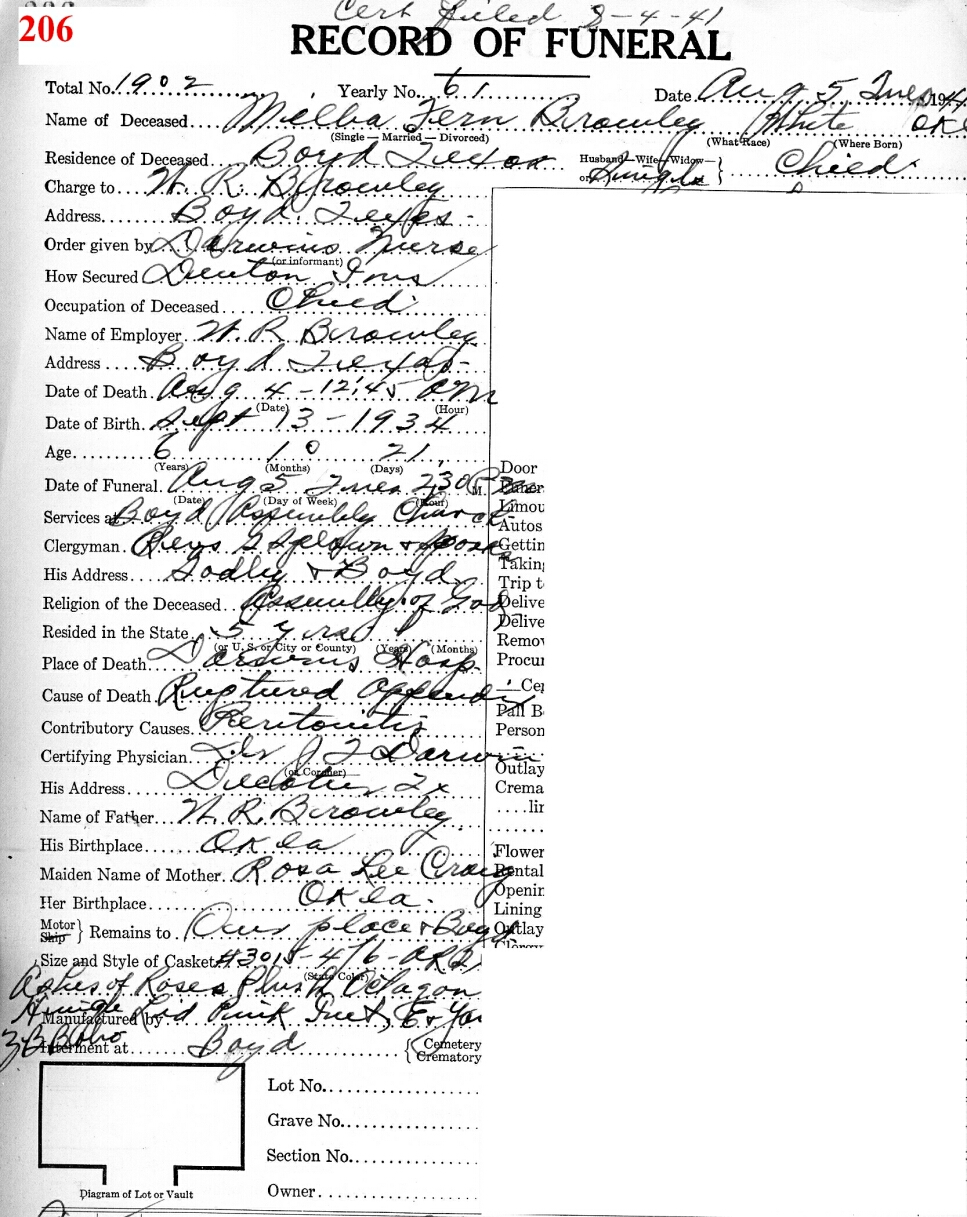 Cert filed 8-4-41
206
RECORD OF FUNERAL
Total No. 1902 Yearly No. 61 Date Aug 5 Tues 194
Name of Deceased Melba Fern Browley White OKL
(Single — Married — Divorced) (What Race) (Where Born)
Residence of Deceased Boyd Texas Husband—Wife—Widow— or Single } Child
Charge to W. R. Browley
Address Boyd Texas -
Order given by Darwins Nurse
(or informant)
How Secured Denton Ins
Occupation of Deceased Child
Name of Employer W. R. Browley
Address Boyd Texas -
Date of Death Aug 4 - 12:45 am
(Date) (Hour)
Date of Birth Sept 13 - 1934
Age 6 10 21
(Years) (Months) (Days)
Door
Date of Funeral Aug 5 Tues 2:30 P.M.
(Date) (Day of Week) (Hour)
Limou
Services at Boyd Assembly Church
Autos
Clergyman Revs G
Gettin
Taking
His Address Godley & Boyd
Trip t
Religion of the Deceased Assembly of God
Delive
Delive
Resided in the State 5 yrs
Remov
(or U. S. or City or County) (Years) (Months)
Place of Death Darwins Hosp
Procur
Cause of Death Ruptured Appendi
Cer
Pall B
Contributory Causes Peritonitis
Person
Certifying Physician Dr J T Darwin
(or Coroner)
Outlay
His Address Decatur Tx
Crema
lin
Name of Father W. R. Browley
His Birthplace Okla
Flower
Maiden Name of Mother Rosa Lee Craig
Rental
Openin
Her Birthplace Okla.
Lining
Motor Ship } Remains to Our place & Boyd
Outlay
Size and Style of Casket #3018-4/6-
(State Color)
Ashes of Roses Plush Octagon
Manufactured by Single Lid Pink Inet, E
Interment at Boyd { Cemetery Crematory
Lot No.
Grave No.
Section No.
Diagram of Lot or Vault
Owner